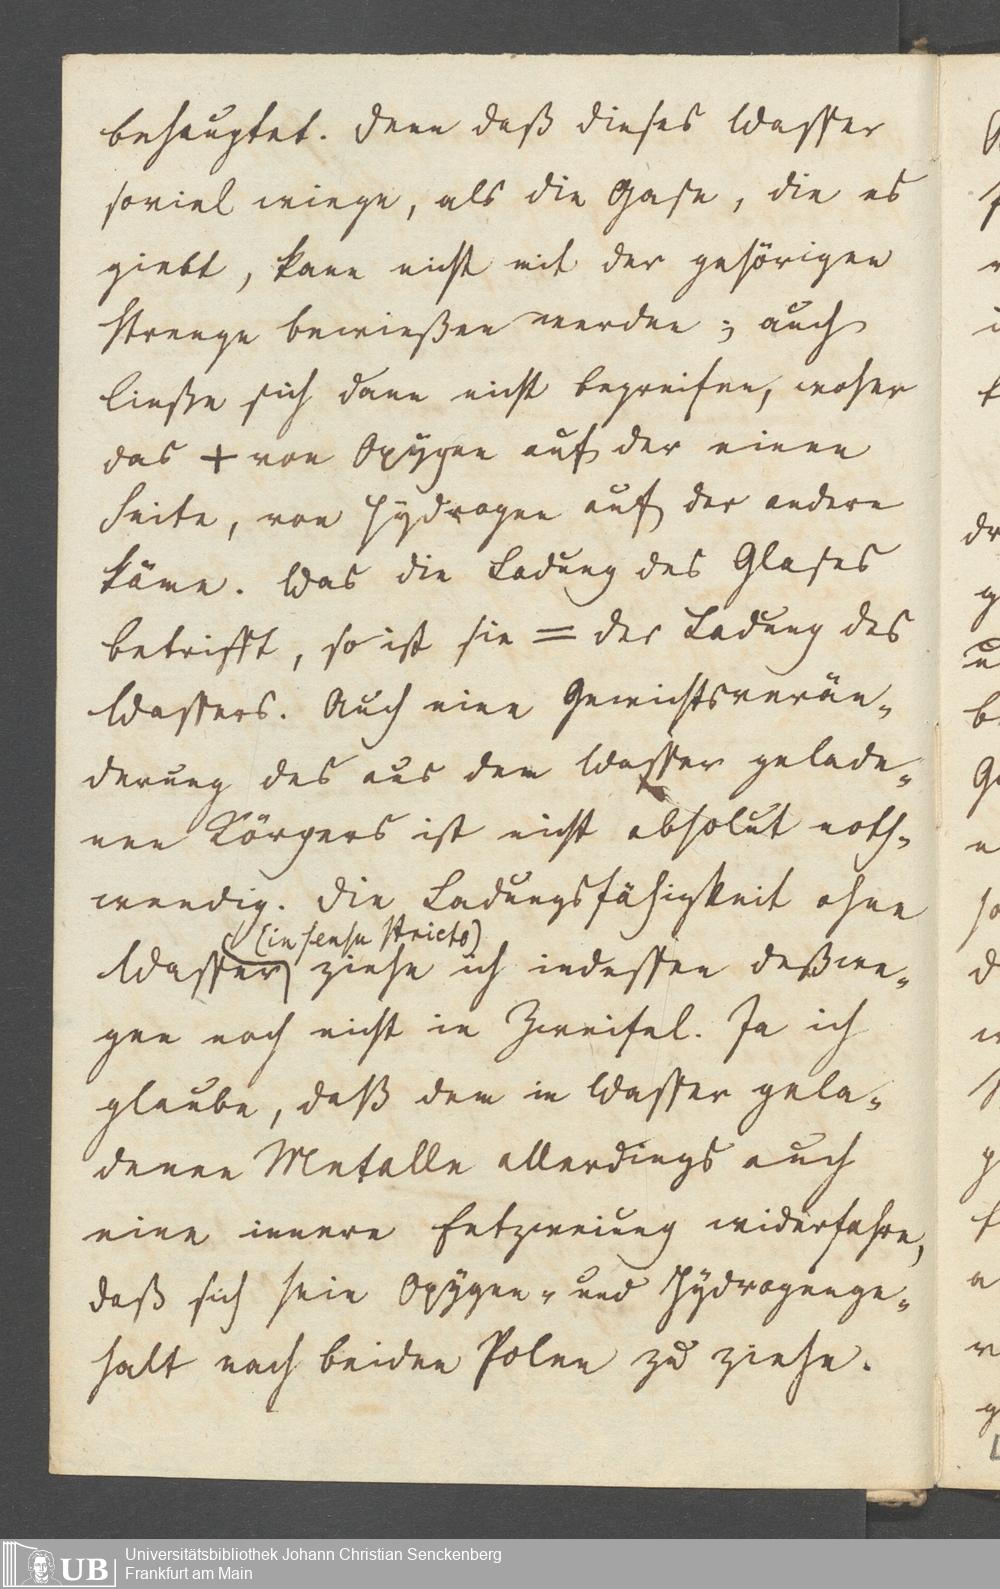 behauptet. Denn daß dieses Wasser
soviel wiege, als die Gase, die es
giebt, kann nicht mit der gehörigen
Strenge bewießen werden; auch
ließe sich dann nicht begreifen, woher
das + von Oxygen auf der einen
Seite, von Hydrogen auf der andern
käme. Was die Ladung des Glases
betrifft, so ist sie = der Ladung des
Wassers. Auch eine Gewichtsverän-
derung des aus dem Wasser gelade-
nen Körpers ist nicht absolut noth-
wendig. Die Ladungsfähigkeit ohne
(in sensu stricto)
Wasser ziehe ich indessen deßwe-
gen noch nicht in Zweifel. Ja ich
glaube, daß dem in Wasser gela-
denen Metalle allerdings auch
eine innere Entzweiung widerfahre,
daß sich sein Oxygen- und Hydrogenge-
halt nach beiden Polen zu ziehe.
UB
Universitätsbibliothek Johann Christian Senckenberg
Frankfurt am Main